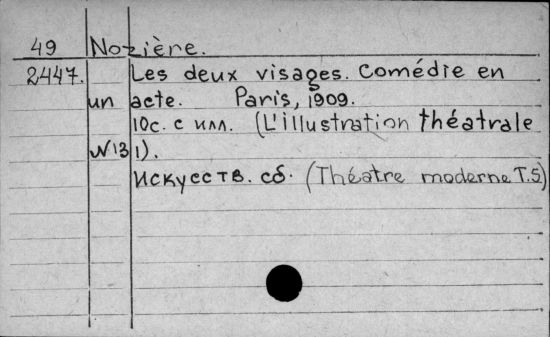 49 Nozière.
2447. Les deux visages. Comédie en
un acte. Paris, 1909.
10с. с илл. (L'illustration théâtrale
N131).
Искусств. сб. (Théatre moderne T.5)